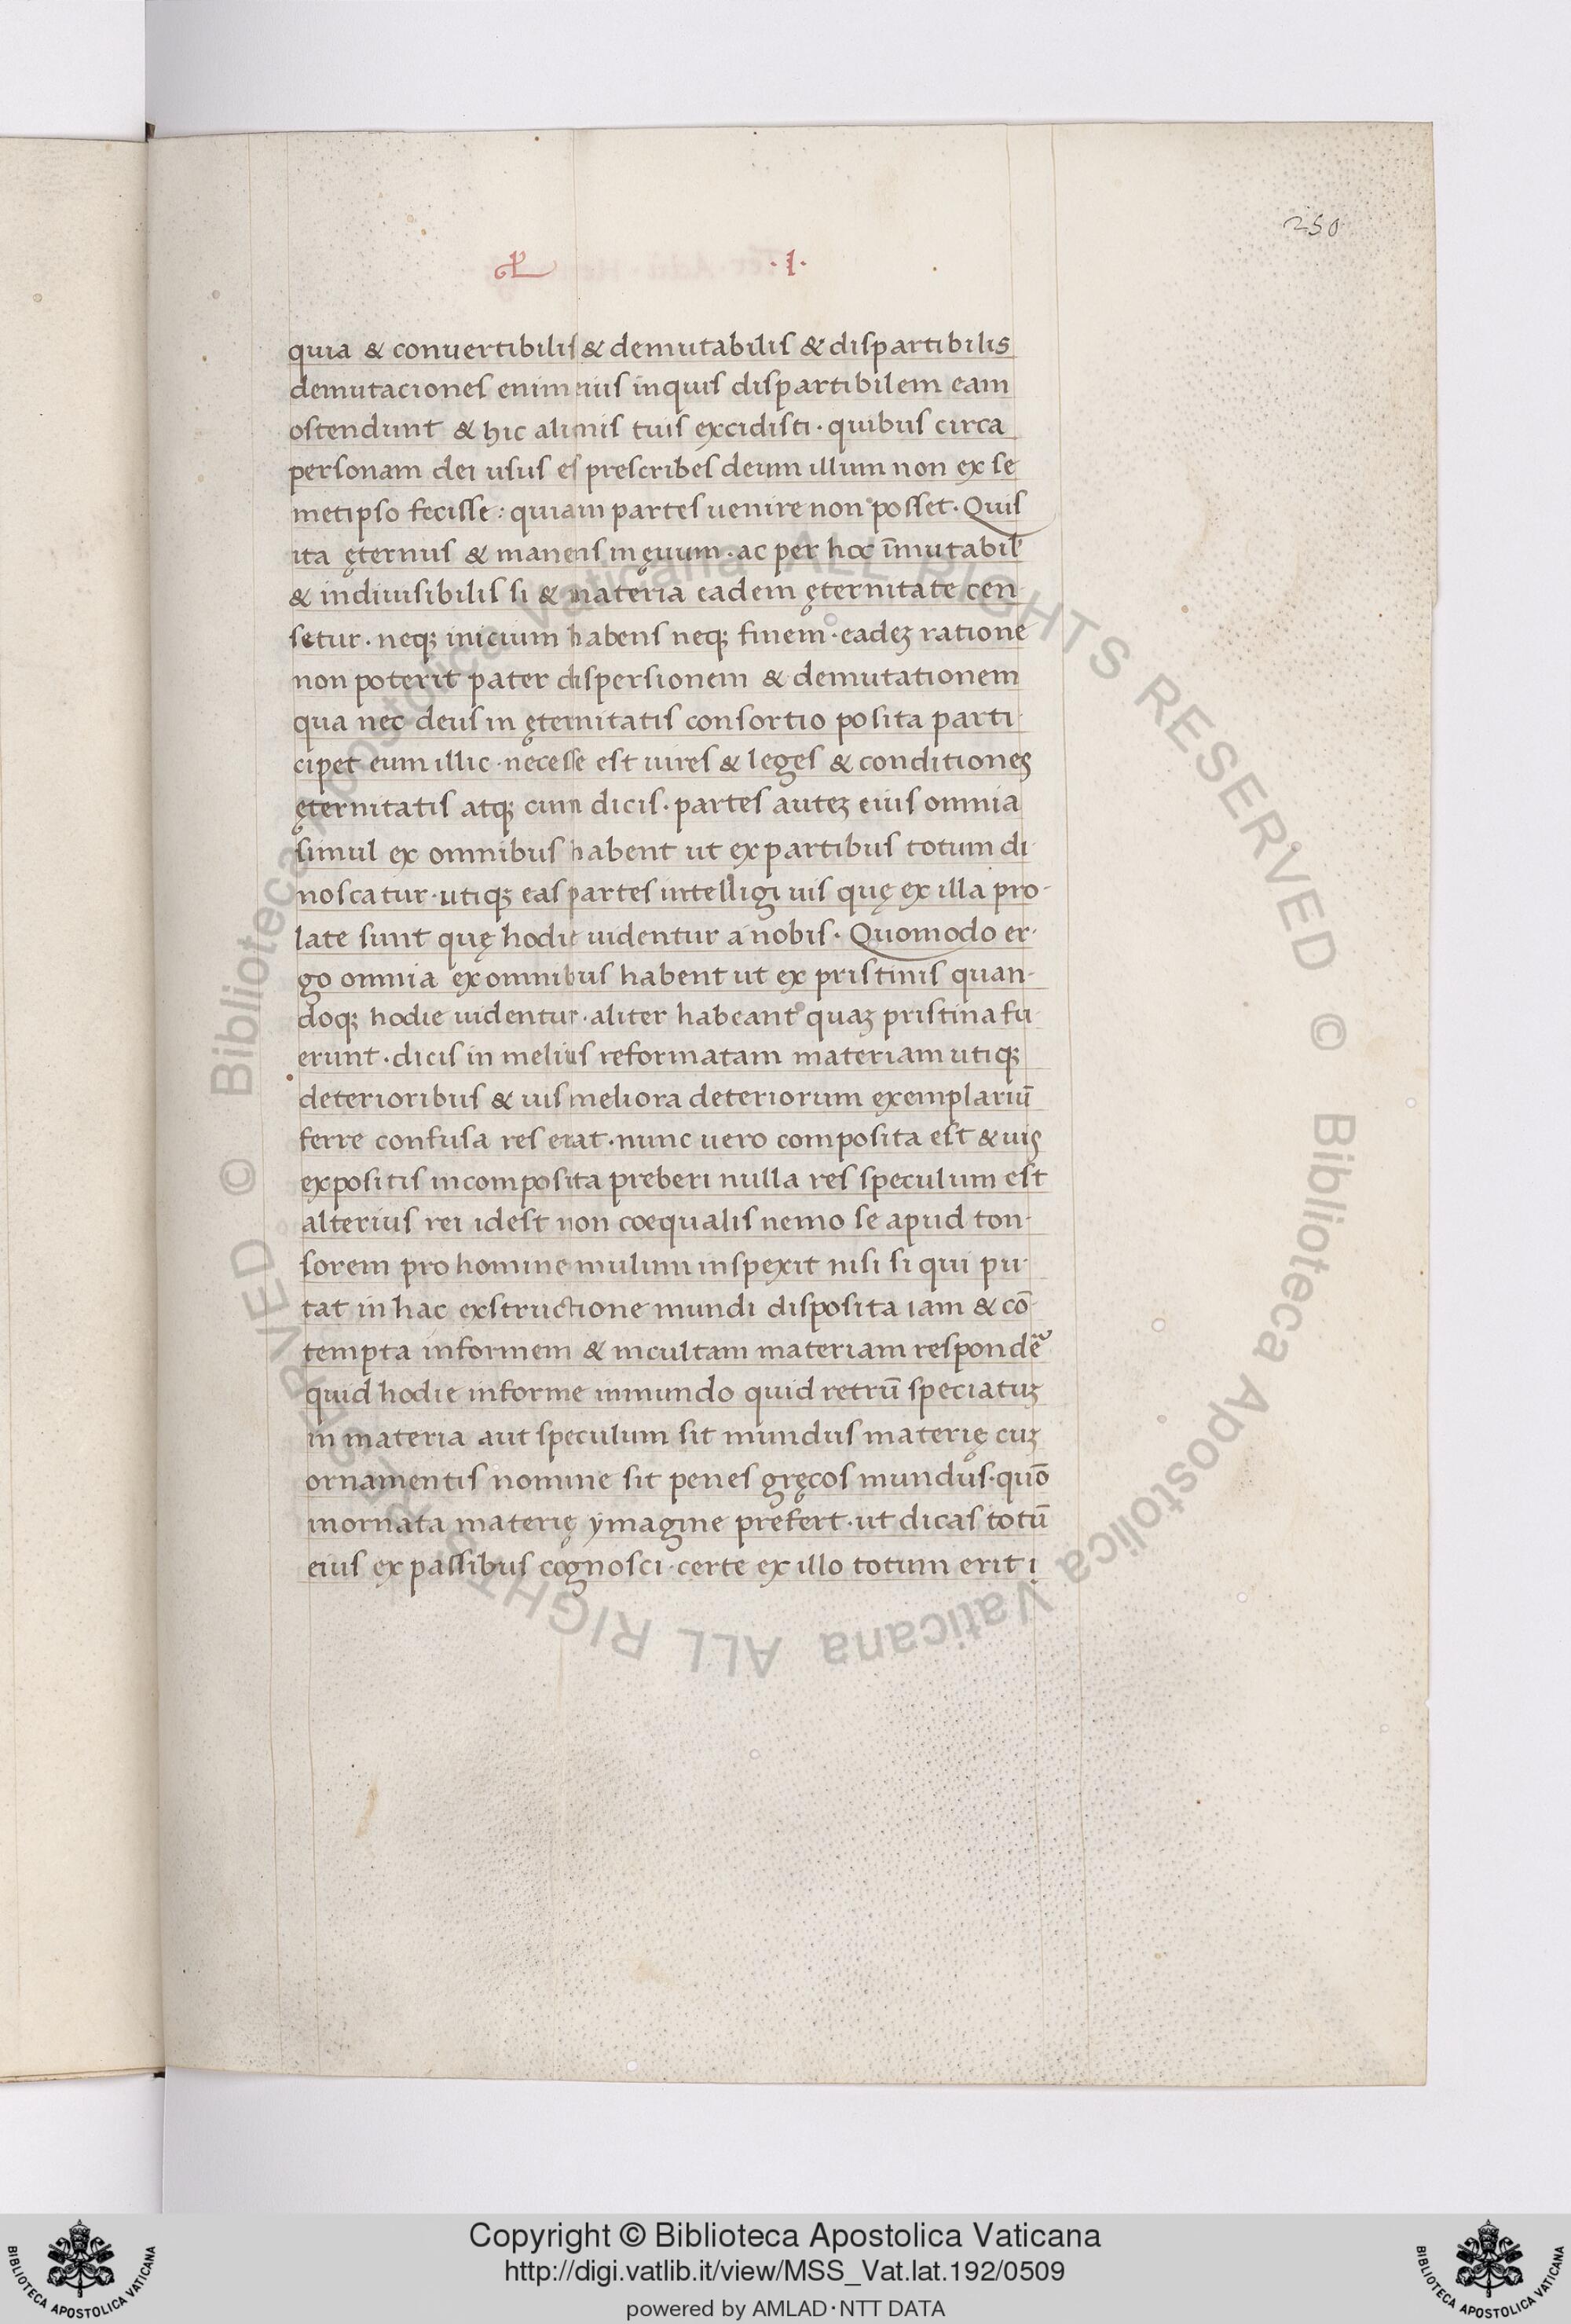 250
.I.
quia & conuertibilis & demutabilis & dispartibilis
demutaciones enim eius inquis dispartibilem eam
ostendunt & hic alinnis tuis excidisti · quibus circa
personam dei usus es prescribes deum illum non ex se
metipso fecisse : quia in partes uenire non posset · Quis
ita ęternus & manens in ęuum · ac per hoc īmutabil
& indiuisibilis si & materia eadem ęternitate cen
setur · neqꝫ inicium habens neqꝫ finem · eadeꝫ ratione
non poterit pater dispersionem & demutationem
qua nec deus in ęternitatis consortio posita parti
cipet eum illic · necesse est uires & leges & conditiones
ęternitatis atqꝫ cum dicis · partes auteꝫ eius omnia
simul ex omnibus habent ut ex partibus totum di
noscatur · utiqꝫ eas partes intelligi uis quę ex illa pro-
late sunt quę hodie uidentur a nobis · Quomodo er-
go omnia ex omnibus habent ut ex pristinis quan-
doqꝫ hodie uidentur · aliter habeant quaꝫ pristina fu
erunt · dicis in melius reformatam materiam utiqꝫ
deterioribus & uis meliora deteriorum exemplariū
ferre confusa res erat · nunc uero composita est & uis
expositis incomposita preberi nulla res speculum est
alterius rei idest non coequalis nemo se apud ton-
sorem pro homine mulum inspexit nisi si qui pu-
tat in hac exstructione mundi disposita iam & cō-
tempta informem & incultam materiam respondē
quid hodie informe in mundo quid retrū speciatuꝫ
in materia aut speculum sit mundus materię cuꝫ
ornamentis nomine sit penes gręcos mundus · quō
inornata materię ymagine prefert · ut dicas totū
eius ex passibus cognosci · certe ex illo totum erit i
© Biblioteca Apostolica Vaticana ALL RIGHTS RESERVED © Biblioteca Apostolica Vaticana ALL RIGHTS RESERVED
Copyright © Biblioteca Apostolica Vaticana
http://digi.vatlib.it/view/MSS_Vat.lat.192/0509
powered by AMLAD·NTT DATA
BIBLIOTECA APOSTOLICA VATICANA
BIBLIOTECA APOSTOLICA VATICANA